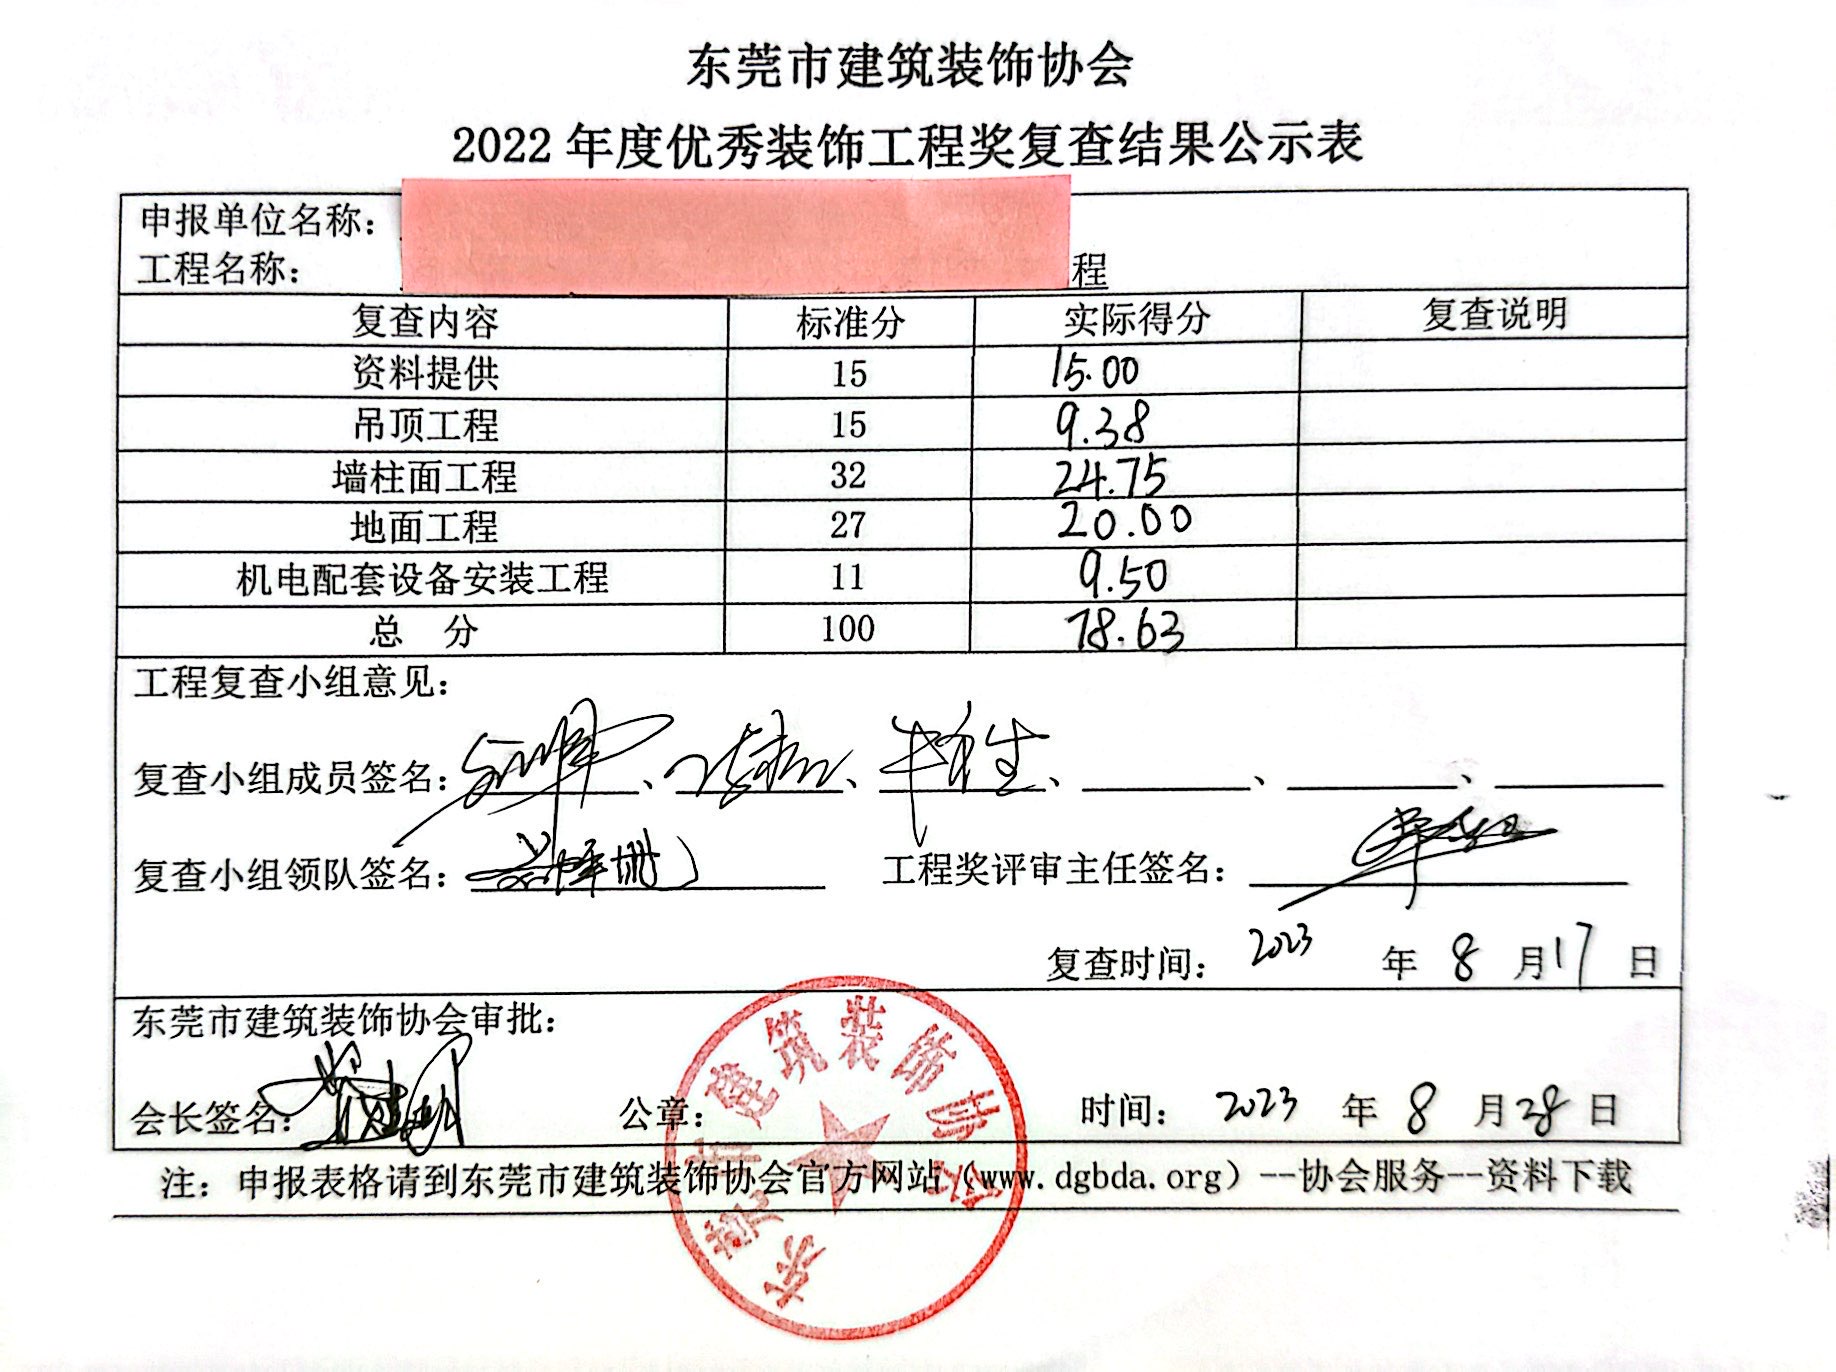 东莞市建筑装饰协会
2022 年度优秀装饰工程奖复查结果公示表
申报单位名称：
工程名称： 程
复查内容 标准分 实际得分 复查说明
资料提供 15 15.00
吊顶工程 15 9.38
墙柱面工程 32 24.75
地面工程 27 20.00
机电配套设备安装工程 11 9.50
总 分 100 78.63
工程复查小组意见：
复查小组成员签名： 、 、 、 、 、
复查小组领队签名： 工程奖评审主任签名：
复查时间： 2023 年 8 月 17 日
东莞市建筑装饰协会审批：
会长签名： 公章： 时间： 2023 年 8 月 28 日
东莞市建筑装饰协会
注：申报表格请到东莞市建筑装饰协会官方网站（www.dgbda.org）--协会服务--资料下载